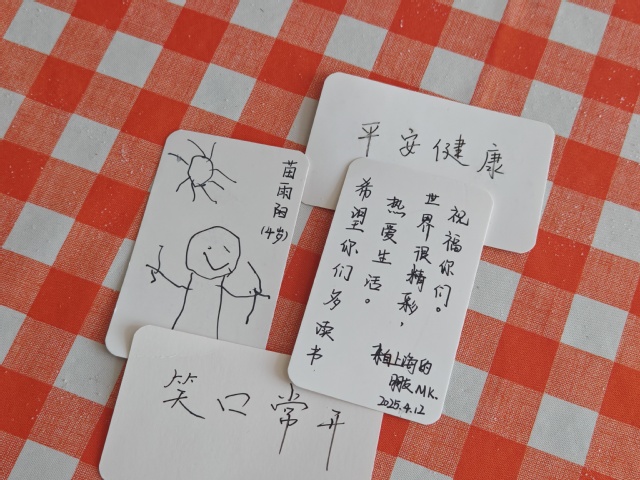 平安健康
苗雨阳
(4岁)
祝福你们。
世界很精彩,
热爱生活。
希望你们多读书.
来自上海的
朋友MK.
2025.4.12
笑口常开